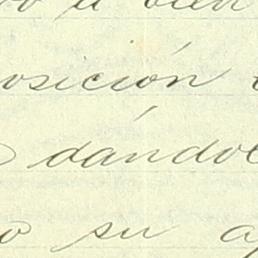 o á bien
osición
dándol
o su a